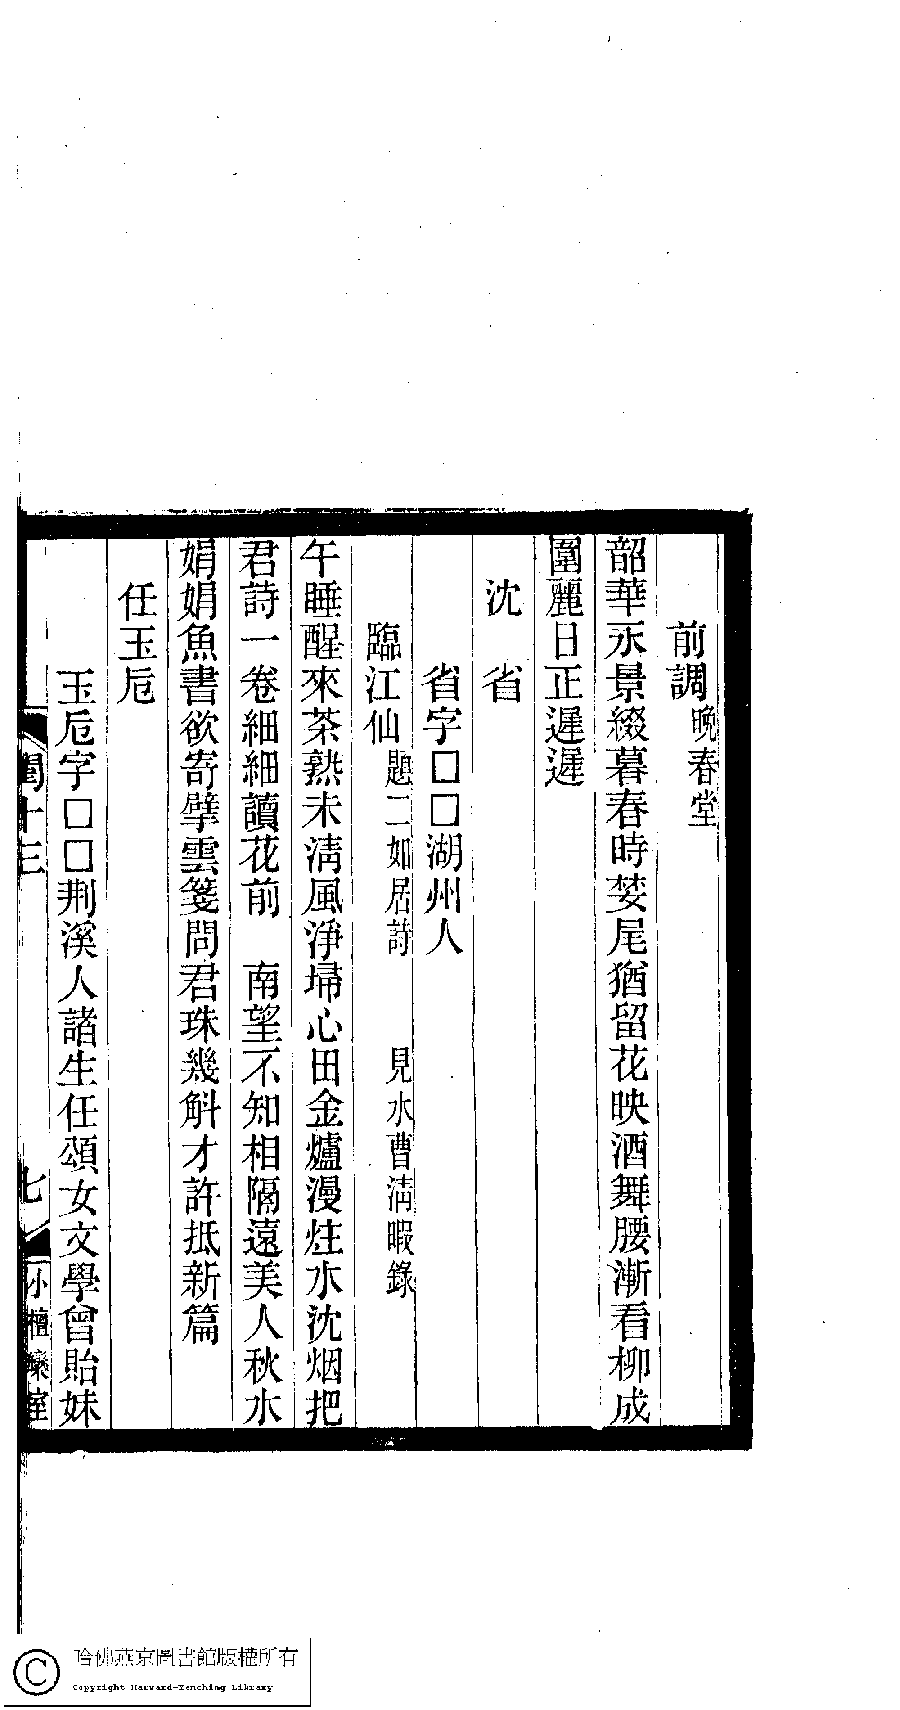 前調晚春堂
韶華永景綴暮春時婪尾猶留花映酒舞腰漸看柳成
圍麗日正遲遲
沈省
省字□□湖州人
臨江仙題二如居詩 見水曹清暇錄
午睡醒來茶熟未淸風淨埽心田金爐漫炷水沈烟把
君詩一卷細細讀花前 南望不知相隔遠美人秋水
娟娟魚書欲寄擘雲箋問君珠幾斛才許抵新篇
任玉卮
玉卮字□□荆溪人諸生任頌女文學曾貽妹
閨十三 七 小檀欒室
哈佛燕京圖書館版權所有
Copyright Harvard-Yenching Library